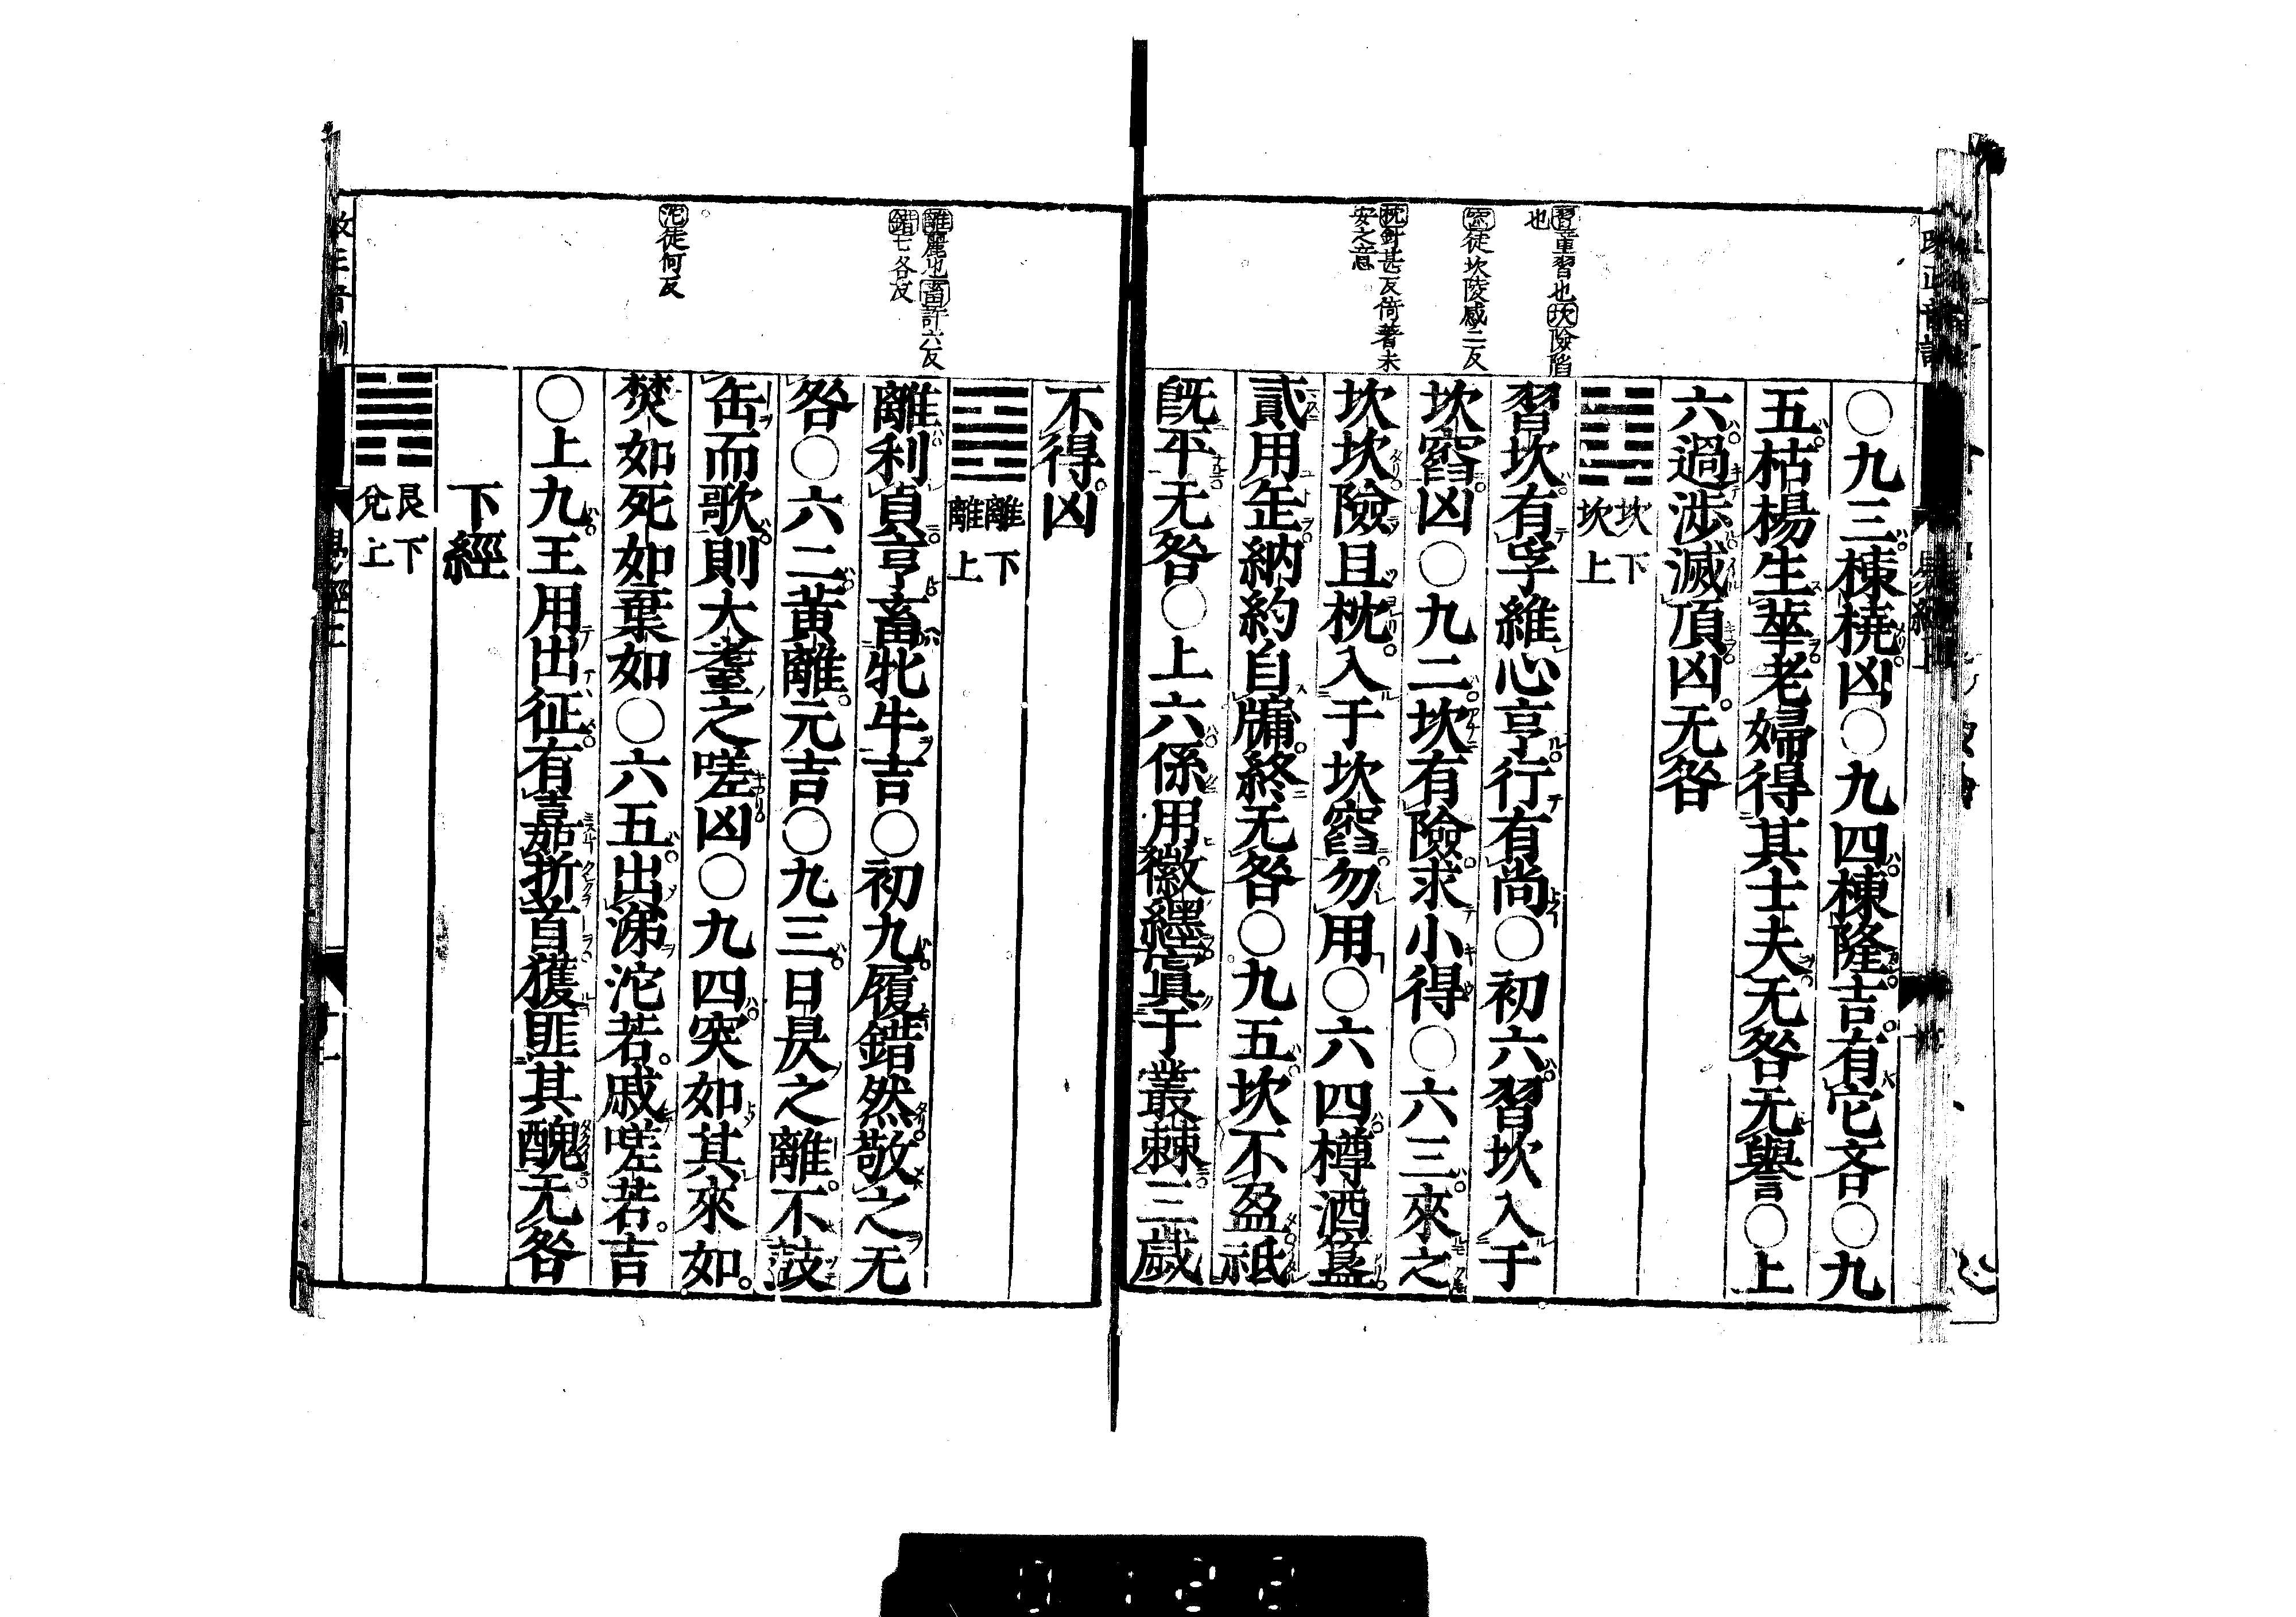 〇九三棟橈凶〇九四棟隆吉有它吝〇九
五枯楊生華老婦得其士夫无咎无譽〇上
六過渉滅頂凶无咎
坎下
坎上
習坎有孚維心亨行有尚〇初六習坎入于
坎窞凶〇九二坎有險求小得〇六三來之
坎坎險且枕入于坎窞勿用〇六四樽酒簋
貳用缶納約自牖終无咎〇九五坎不盈祗
旣平无咎〇上六係用徽纆寘于叢棘三歲
習重習也坎險陷
也
窞徒坎陵感二反
枕針甚反倚著未
安之意
不得凶
離下
離上
離利貞亨畜牝牛吉〇初九履錯然敬之无
咎〇六二黃離元吉〇九三日昃之離不鼓
缶而歌則大耋之嗟凶〇九四突如其來如
焚如死如棄如〇六五出涕沱若戚嗟若吉
〇上九王用出征有嘉折首獲匪其醜无咎
下經
艮下
兌上
離麗也畜許六反
錯七各反
沱徒何反
易經上
十一